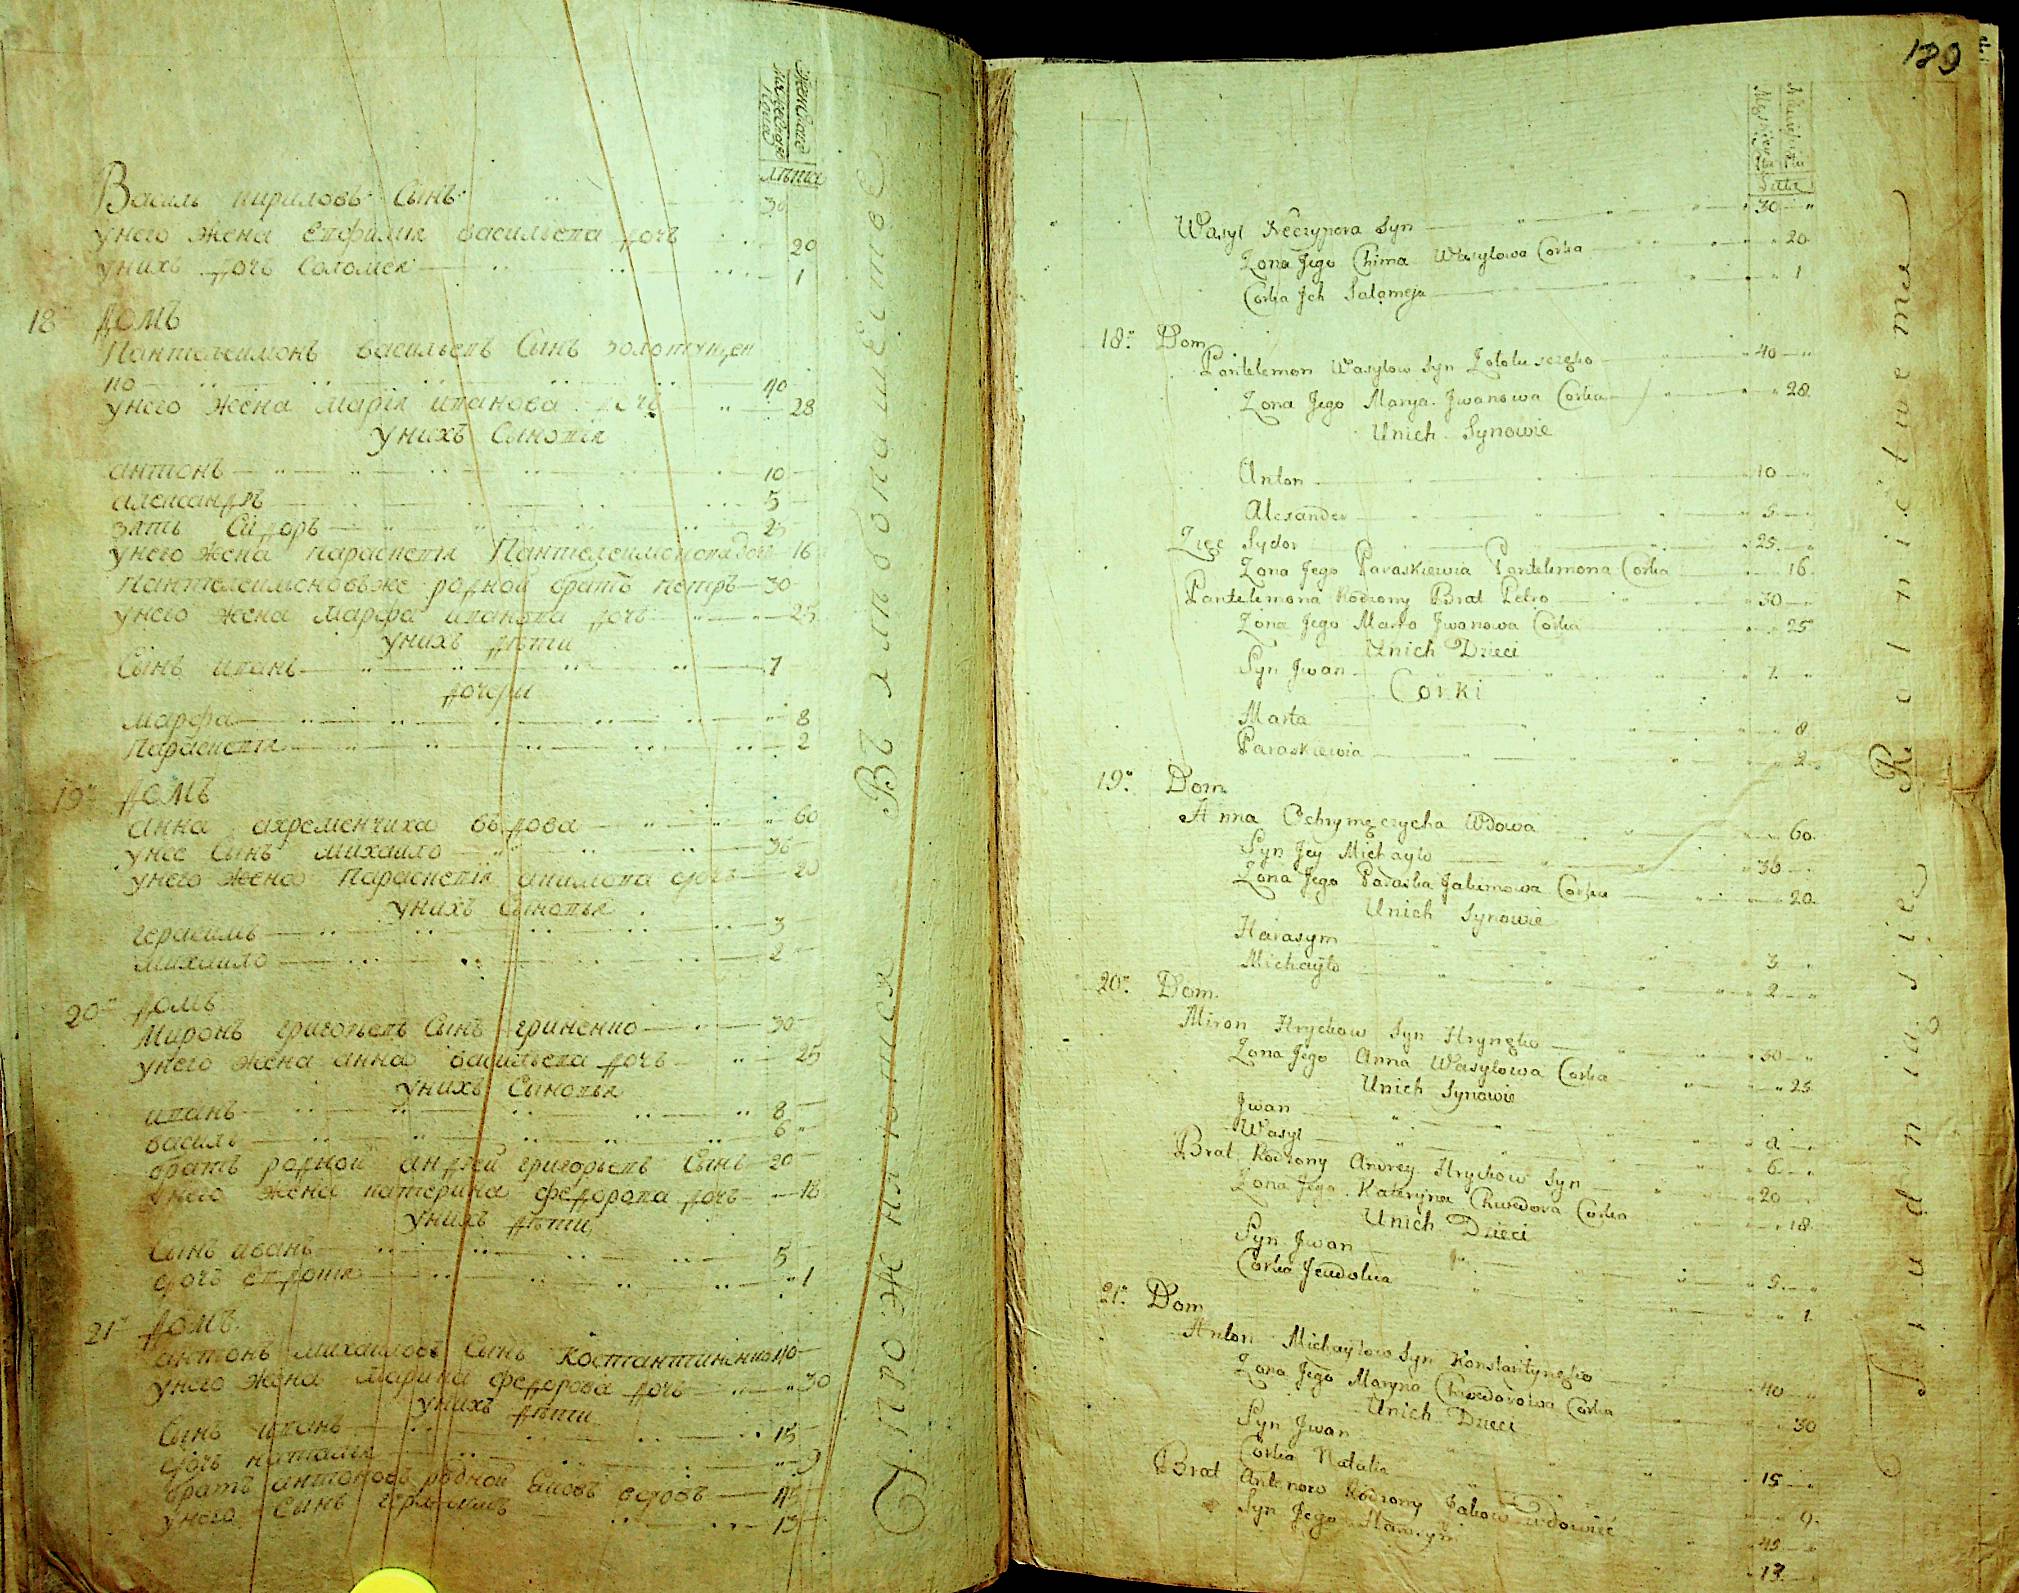 Женскаго
Мужескаго
лѣта
Василь кириловъ Сынъ 30
унего жена Евфимия васильева дочь 20
унихъ дочь Соломея 1
18" домъ
Пантелеимонъ васильевъ Сынъ золотущен
ко 40
унего жена мария иванова дочь 28
унихъ Сыновія
антонъ 10
александръ 5
зять Сидоръ 25
унего жена параскевія Пантелеимонова дочь 16
Пантелеимоновъже родной братъ петръ 30
унего жена марфа иванова дочь 25
унихъ дѣти
Сынъ иванъ 7
дочери
марфа 8
Параскевія 2
19" домъ
анна ахременчиха вдова 60
унее Сынъ михаило 36
унего жена Параскевія акимова дочь 20
унихъ Сыновья
герасимъ 3
михаило 2
20" домъ
Миронъ григорьевъ Сынъ гриненко 30
унего жена анна васильева дочь 25
унихъ Сыновья
иванъ 8
василь 6
братъ родной андрей григорьевъ Сынъ 20
унего жена катерина федорова дочь 18
унихъ дѣти
Сынъ иванъ 5
дочь евдокія 1
21" домъ
антонъ михаиловъ Сынъ Костантиненко 40
унего жена марина федорова дочь 30
унихъ дѣти
Сынъ иванъ 15
дочь наталія 9
братъ антоновъ родной Яковъ вдовъ 45
унего Сынъ герасимъ 13
189
Lata
Wasyl Neczypora Syn 30
Zona Jego Chima Wasylowa Corka 20
Corka Jch Salomeja 1
18" Dom
Pantelemon Wasylow Syn Zolotuszczęko 40
Zona Jego Marya Jwanowa Corka 28
Unich Synowie
Anton 10
Alexander 5
Zięc Sydor 25
Zona Jego Paraskiewia Pantelimona Corka 16
Pantelimona Rodzony Brat Petro 30
Zona Jego Marta Jwanowa Corka 25
Unich Dzieci
Syn Jwan 7
Corki
Marta 8
Paraskiewia 2
19" Dom
Anna Ochrymęczycha Wdowa 60
Syn Jey Michayło 36
Zona Jego Paraska Jakimowa Corka 20
Unich Synowie
Harasym 3
Michayło 2
20" Dom
Miron Hryckow Syn Hrynęko 30
Zona Jego Anna Wasylowa Corka 25
Unich Synowie
Jwan 8
Wasyl 6
Brat Rodzony Andrey Hryckow Syn 20
Zona Jego Kateryna Chwedora Corka 18
Unich Dzieci
Syn Jwan 5
Corka Jewdokia 1
21" Dom
Anton Michayłow Syn Konstantynęko 40
Zona Jego Maryna Chwedorowa Corka 30
Unich Dzieci
Syn Jwan 15
Corka Natalia 9
Brat Antonow Rodzony Jakow wdowiec 45
Syn Jego Harasym 13